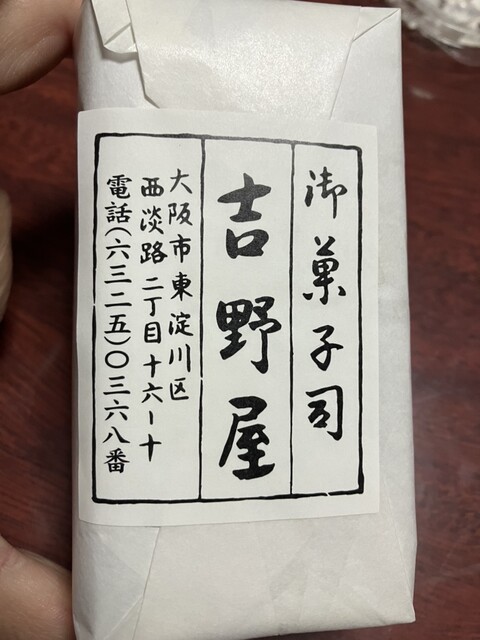 御菓子司
吉野屋
大阪市東淀川区
西淡路二丁目十六ー十
電話(六三二五)〇三六八番